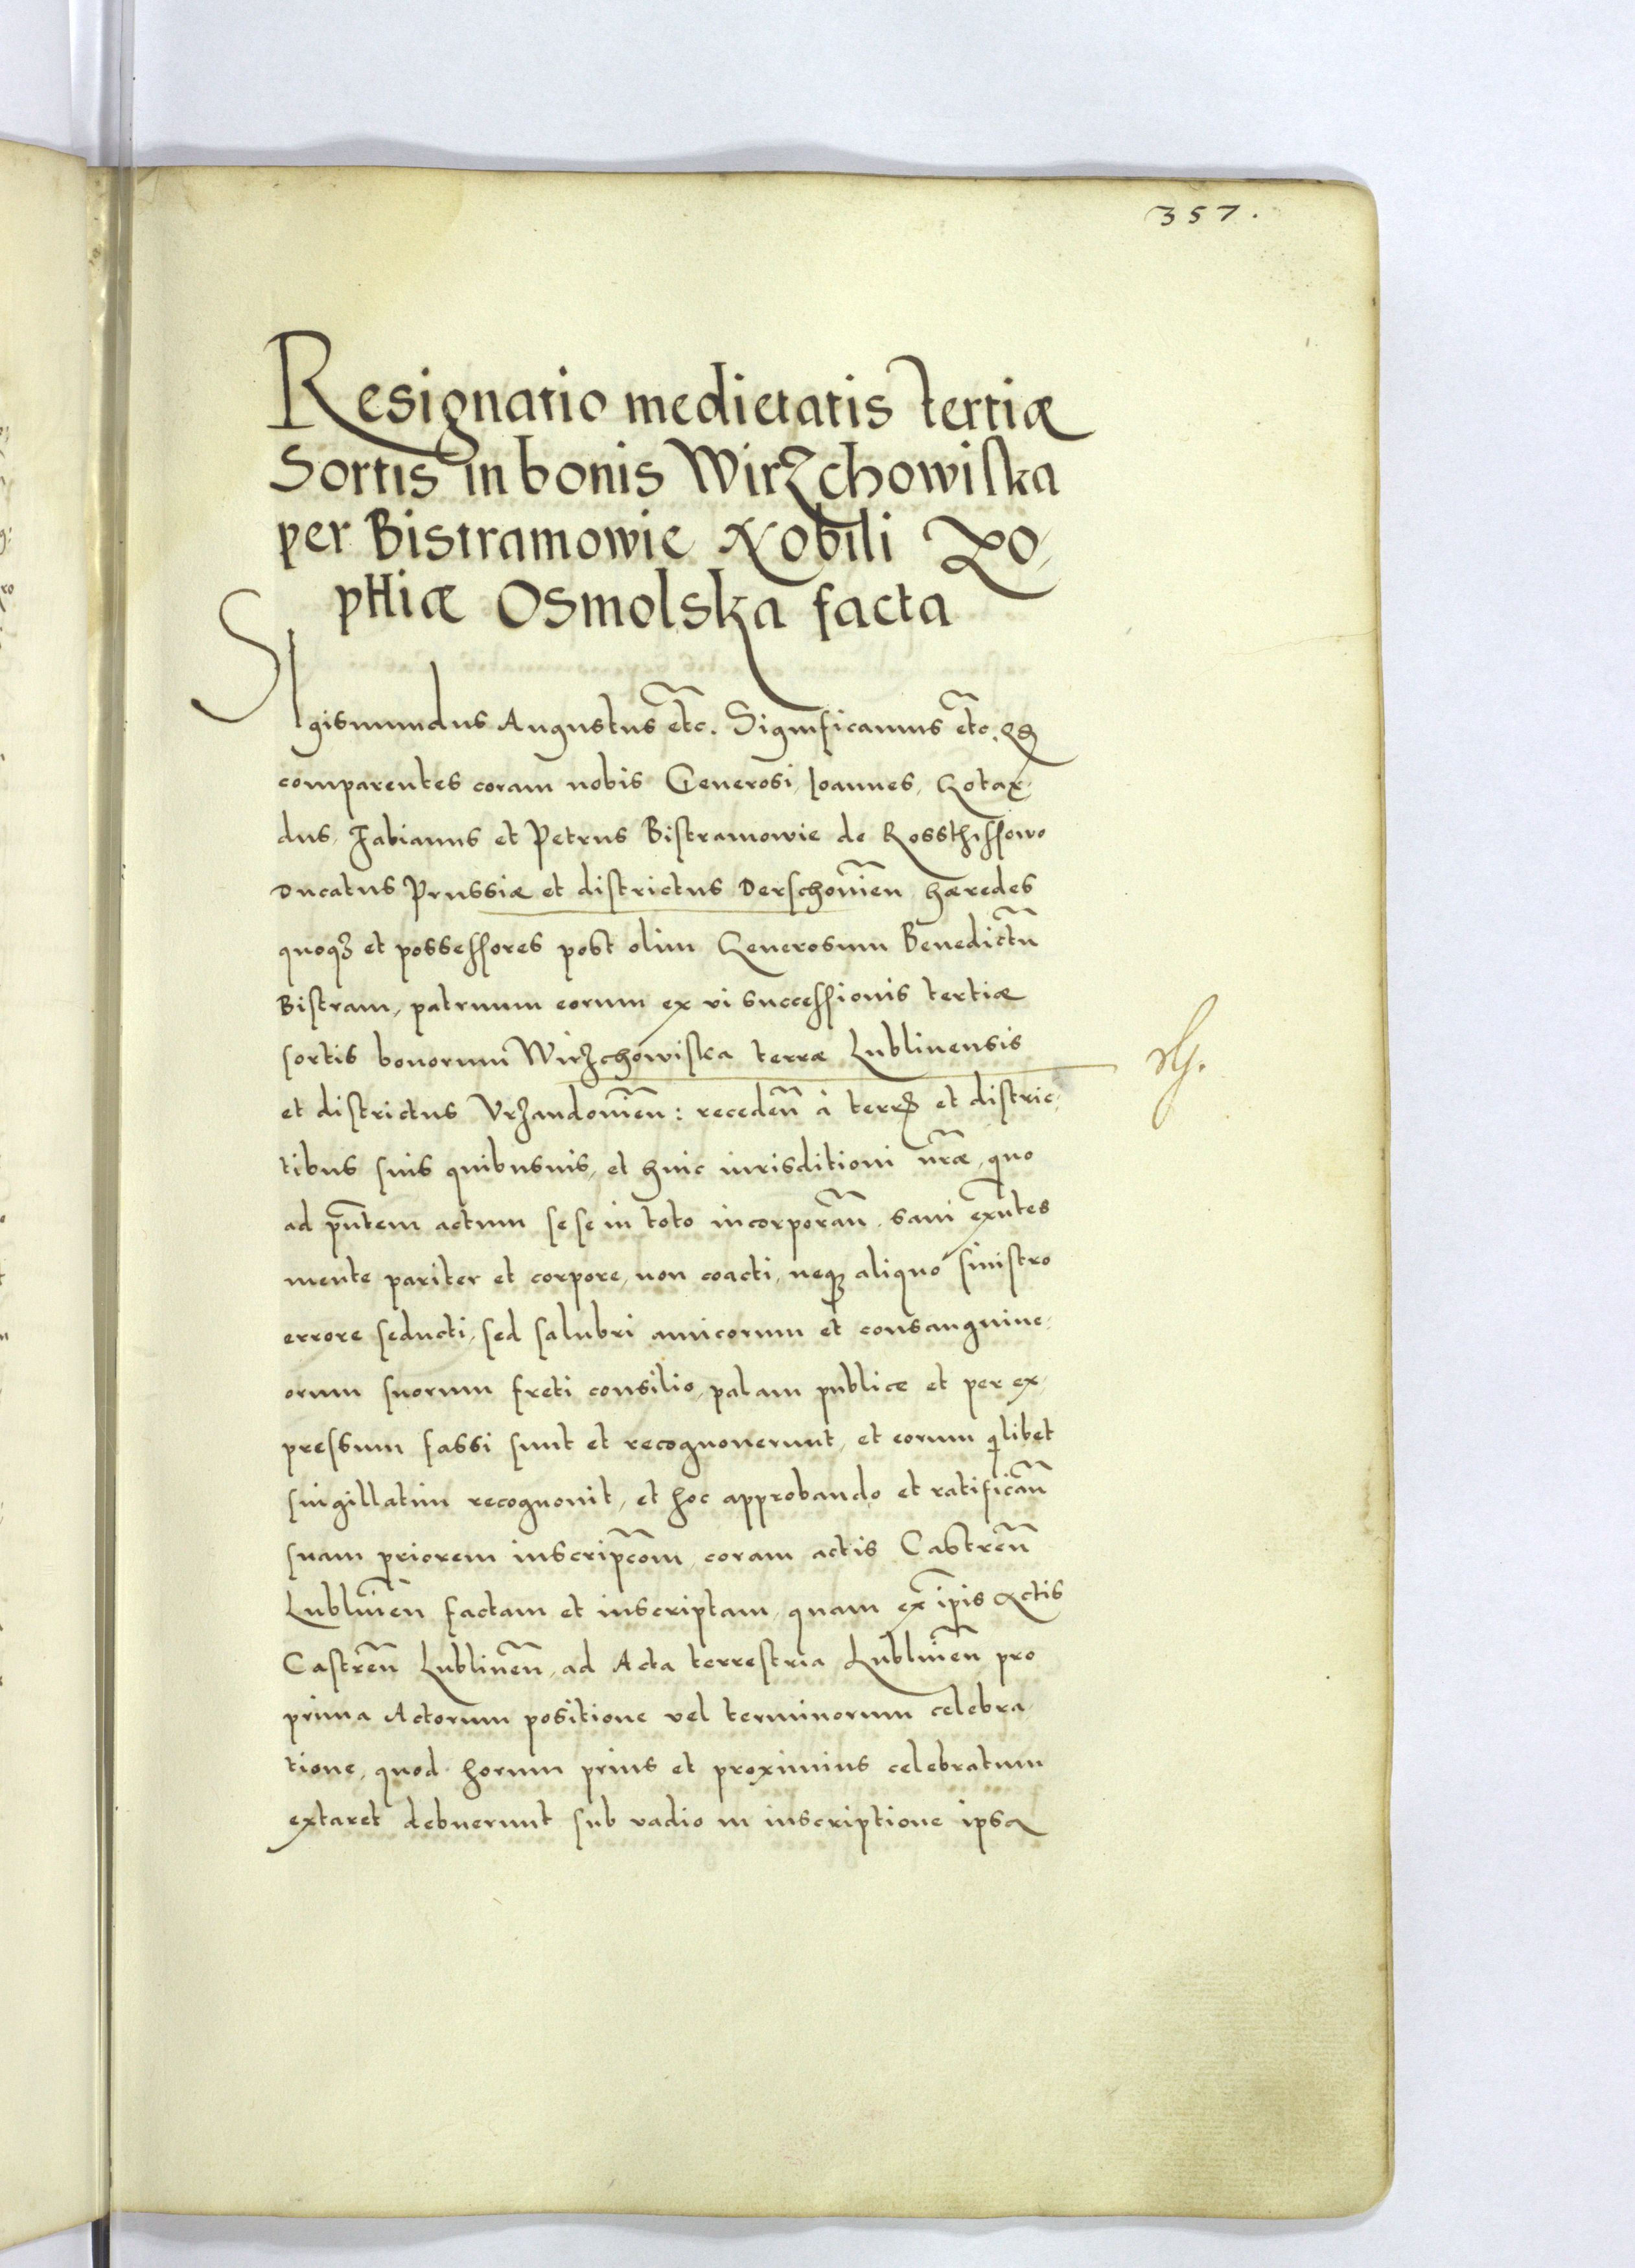 357.
Resignatio medietatis tertiæ
Sortis in bonis Wirzchowiska
per Bistramowie Nobili Zo,
phiæ Osmolska facta
SIgismundus Augustus etc̃. Significamus etc̃. Qđ
comparentes coram nobis Generosi, Joannes, Gotar,
dus, Fabianus et Petrus Bistramowie de Rossthissowo
Ducatus Prussiæ et districtus Derschouień hæredes
quoqȝ et possessores post olim Generosum Benedictũ
Bistram, patruum eorum ex vi successionis tertiæ
sortis bonorum Wirzchowiska terræ Lublinensis
et districtus Vrzandouień: recedeñ à terrs et distric,
tibus suis quibusuis, et huic iurisditioni nr̃æ, quo
ad pñtem actum sese in toto incorporañ. sani exñtes
mente pariter et corpore, non coacti, neqȝ aliquo sinistro
errore seducti, sed salubri amicorum et consanguine,
orum suorum freti consilio, palam publice et per ex,
pressum fassi sunt et recognouerunt, et eorum qlibet
singillatim recognouit, et hoc approbando et ratificañ
suam priorem inscripc̃om coram actis Castreñ
Lublineñ factam et inscriptam, quam ex ip̃is Actis
Castreñ Lublineñ, ad Acta terrestria Lublineñ pro
prima Actorum positione vel terminorum celebra,
tione, quod horum prius et proximius celebratum
extaret debuerunt sub vadio in inscriptione ipsa